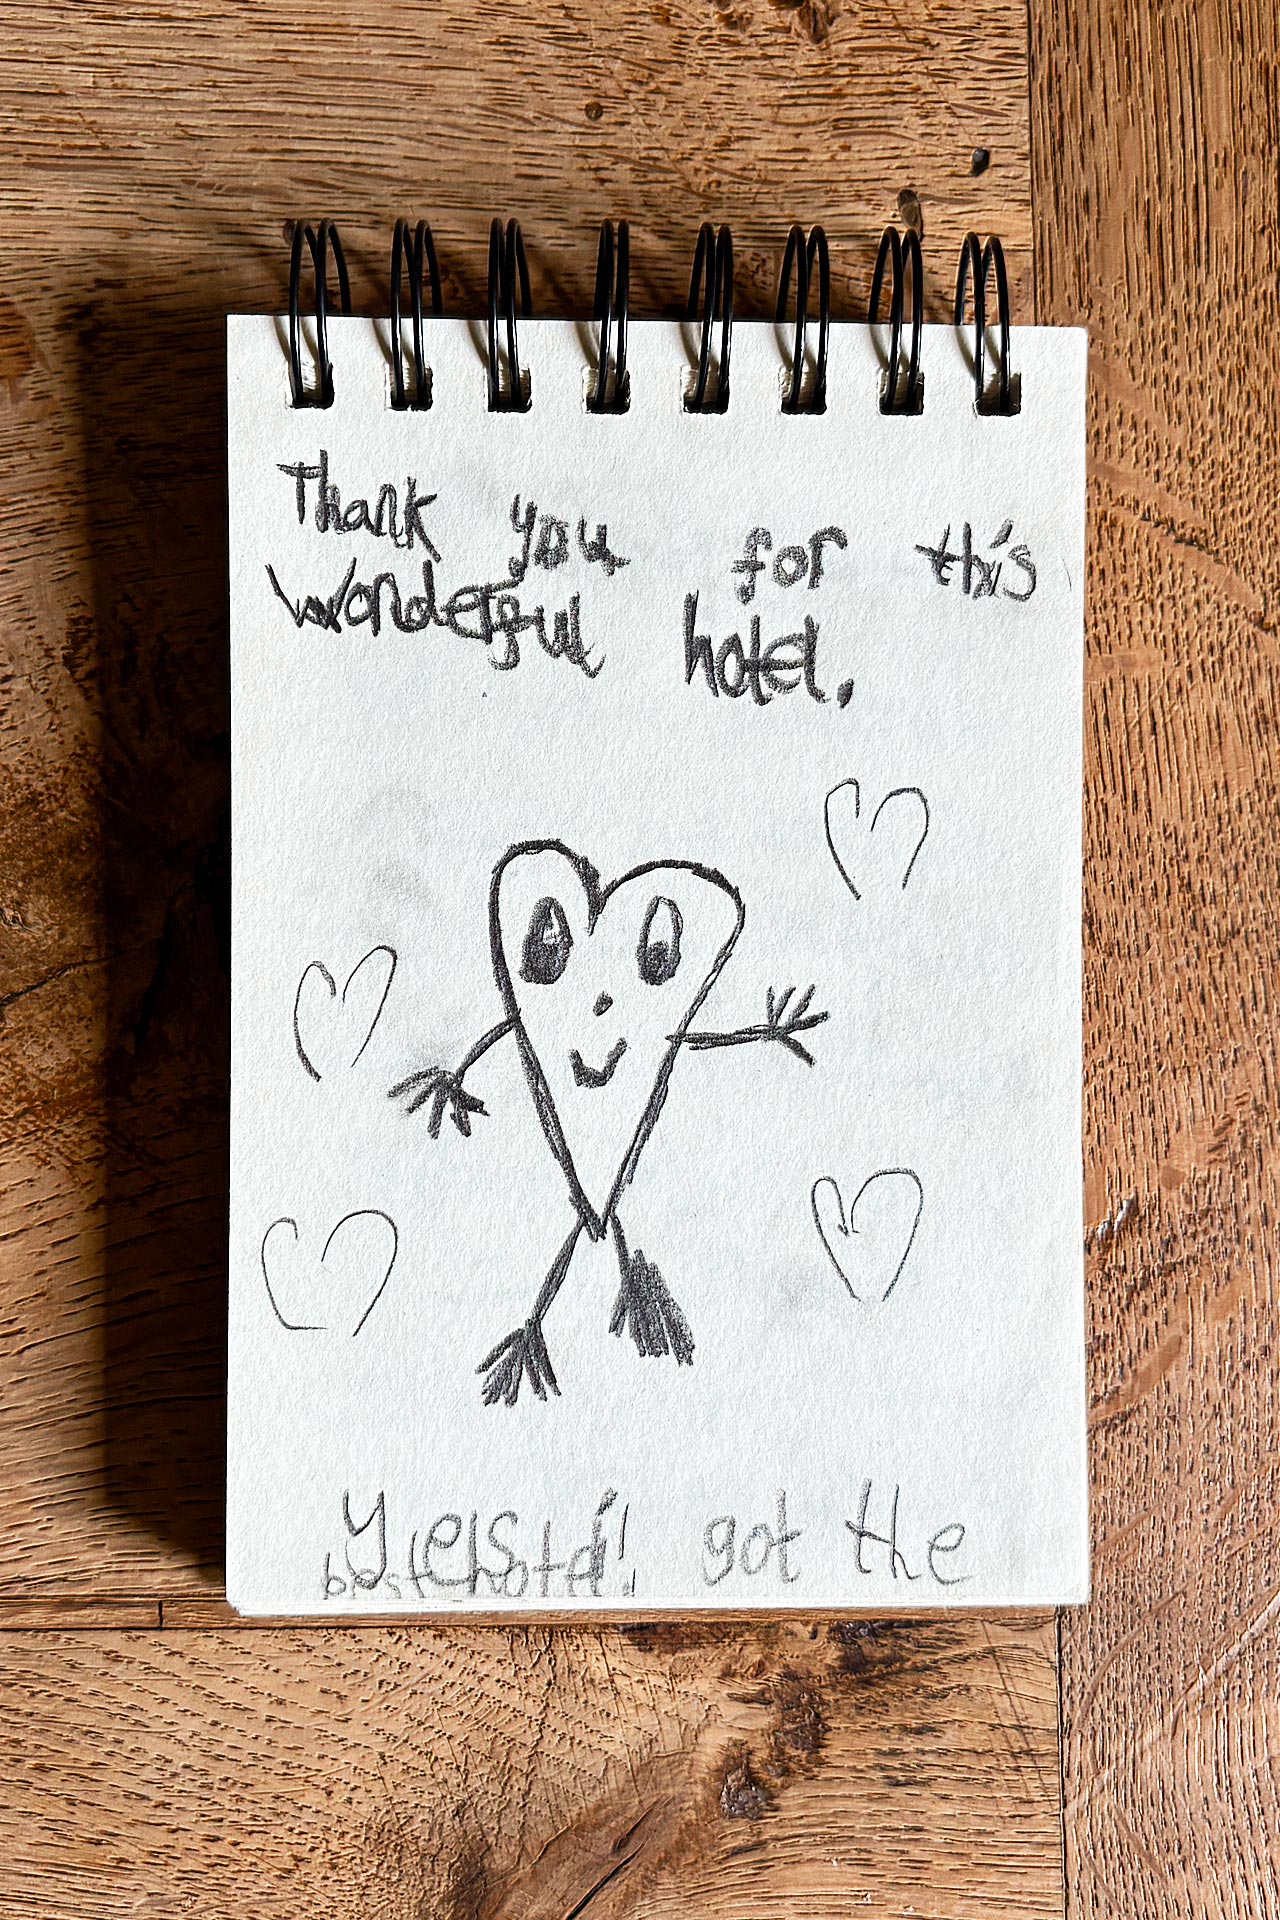 Thank you for this
wonderful hotel.
Yes i got the
best hotel!